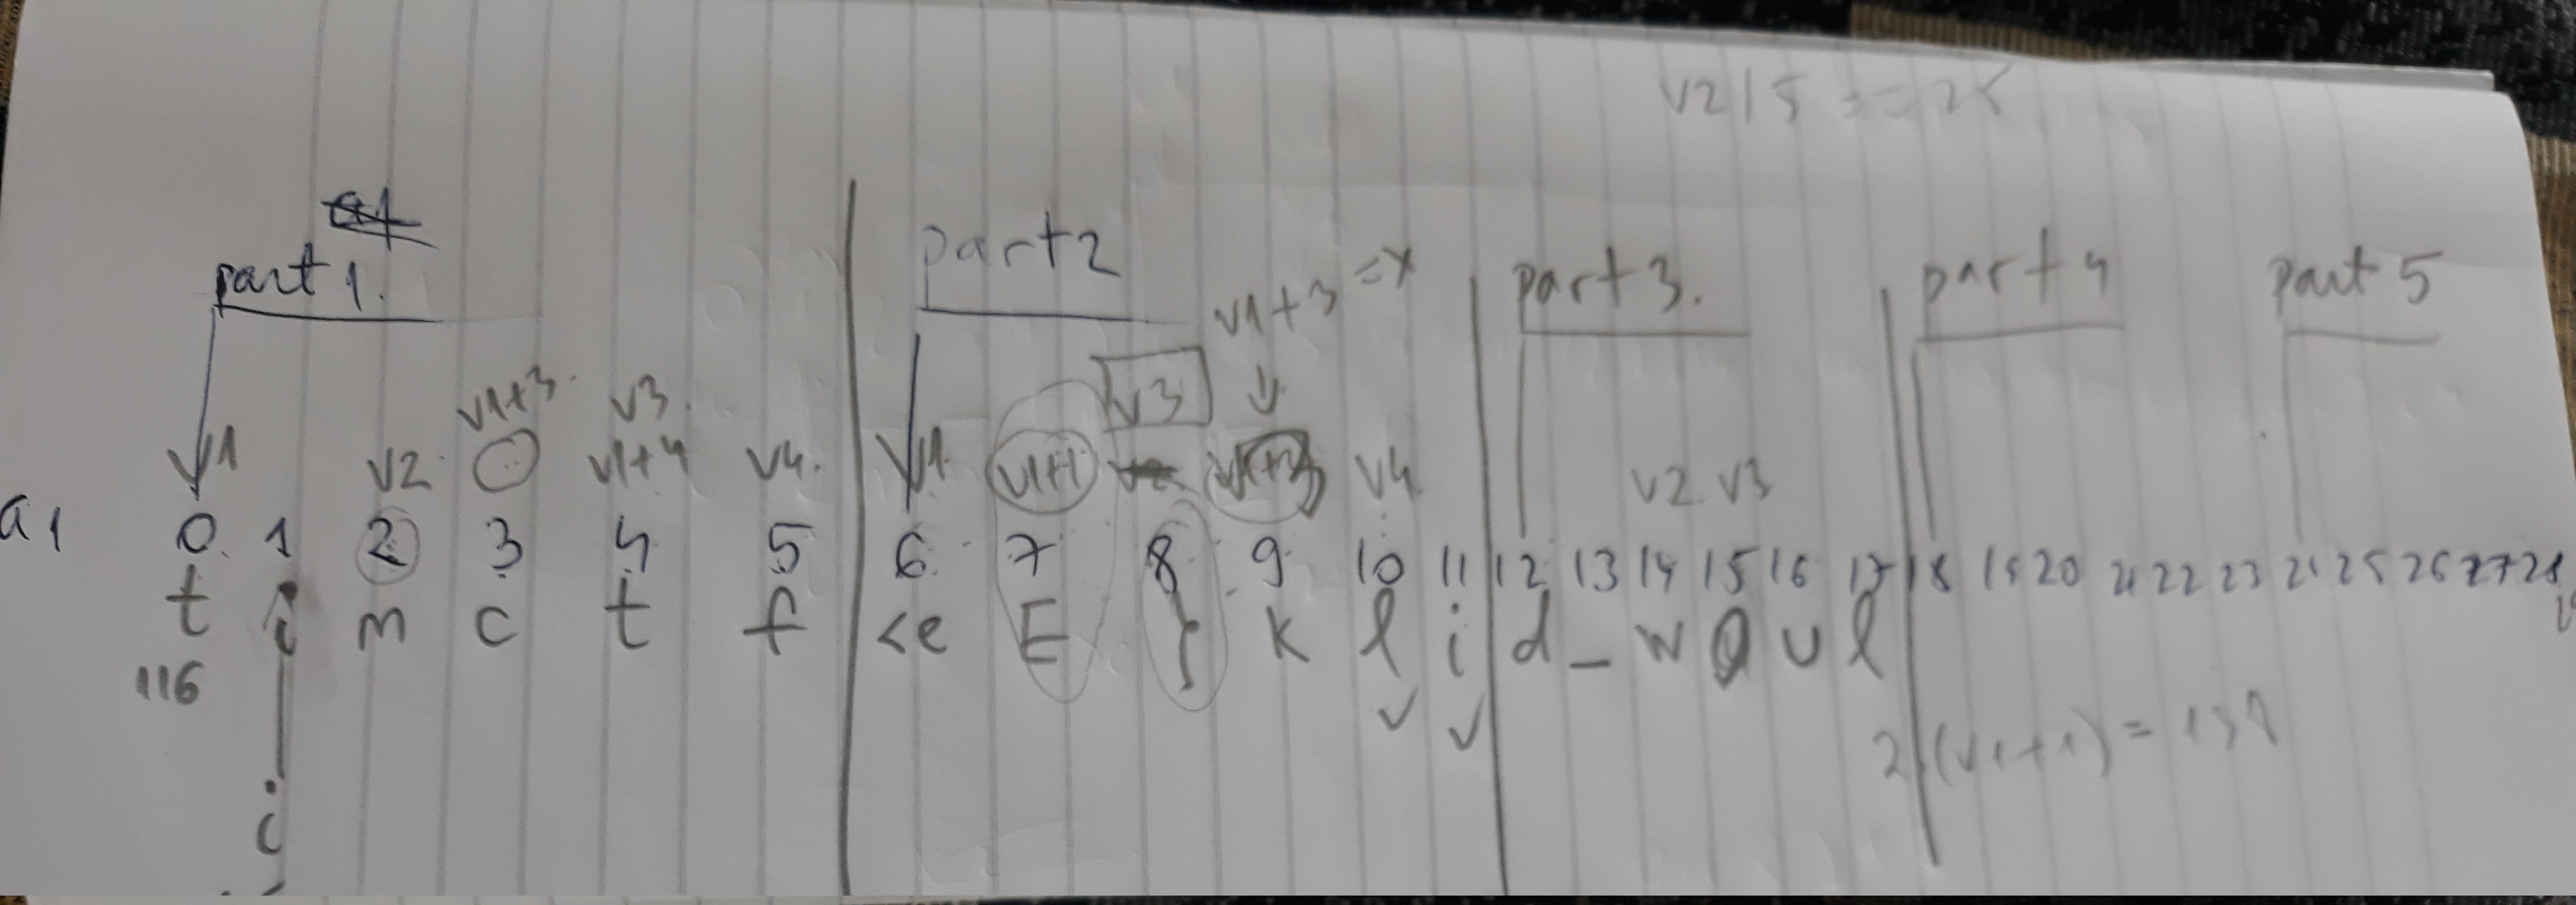 part 1.
part2
v1+3 =x
part 3.
part 4
part 5
v1+3.
v3.
v3
v1
v2.
v1+4
v4.
v1
v1+1
v4
v2. v3
a1
0. 1 2 3 4 5 6 7 8 9 10 11 12 13 14 15 16 17 18 19 20 21 22 23 25 26 27 28
t i m c t f <e E { k l i d _ w u l
116
i
2 (v1+1) =